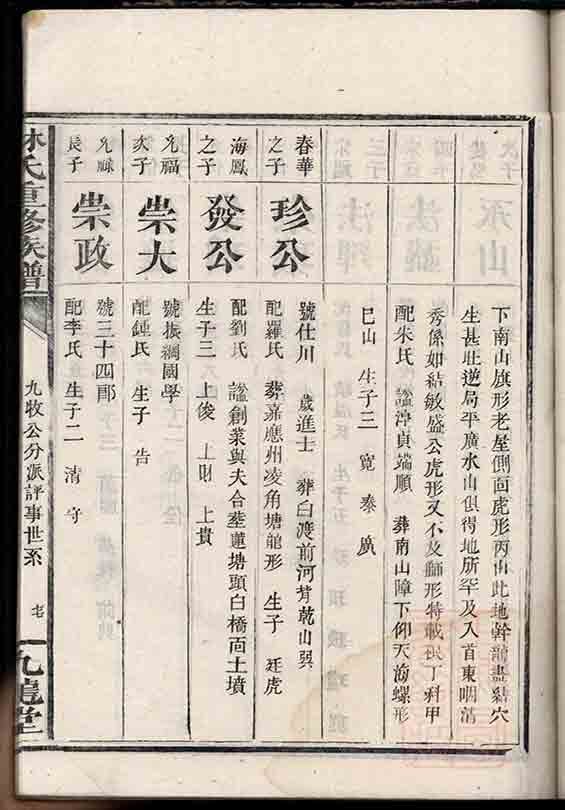 下南山旗形老屋側面虎形丙山此地幹龍盡結穴
生甚旺逆局平廣水山俱得地所罕及入首東咽清
秀係如結敏盛公虎形又不及獅形特載 丁科甲
配朱氏 諡淳貞端順 葬南山障下仰天海螺形
巳山 生子三 寬 泰 廣
春華之子
珍公
號仕川 歲進士 葬白渡前河背乾山巽
配羅氏 葬嘉應州凌角塘龍形 生子 廷虎
海鳳之子
發公
配劉氏 諡創業與夫合葬蓮塘頭白橋面土墳
生子三 上俊 上財 上貴
允福次子
崇大
號振綱國學
配鍾氏 生子 告
允祿長子
崇政
號三十四郎
配李氏 生子二 清 守
林氏重修族譜
九牧公分派評事世系
九龍堂